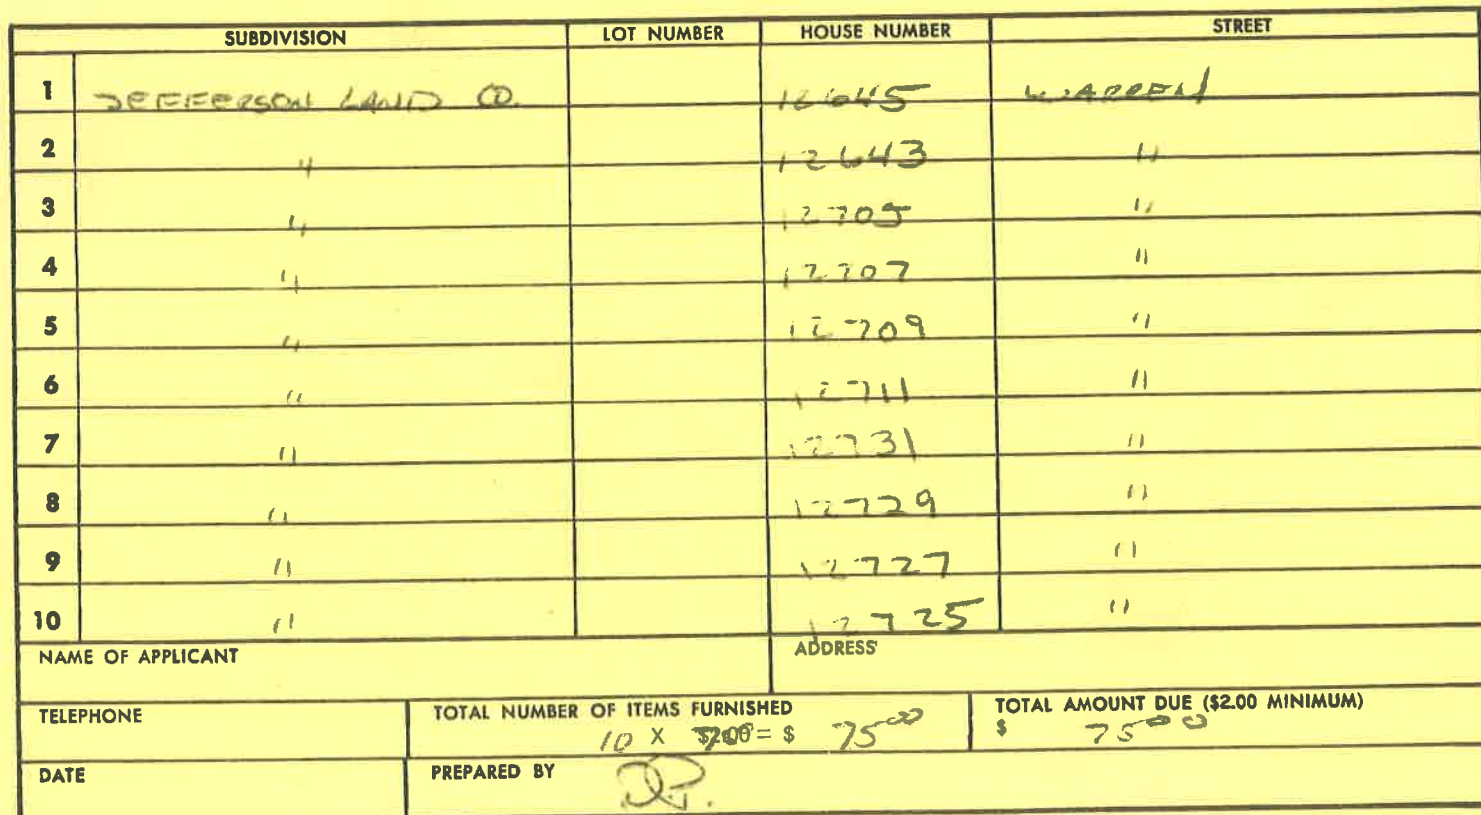 SUBDIVISION LOT NUMBER HOUSE NUMBER STREET
1 JEFFERSON LAND CO. 12645 WARREN
2 " 12643 "
3 " 12705 "
4 " 12707 "
5 " 12709 "
6 " 12711 "
7 " 12731 "
8 " 12729 "
9 " 12727 "
10 " 12725 "
NAME OF APPLICANT ADDRESS
TELEPHONE TOTAL NUMBER OF ITEMS FURNISHED TOTAL AMOUNT DUE ($2.00 MINIMUM)
10 X = $ 75 00 $ 75 00
DATE PREPARED BY